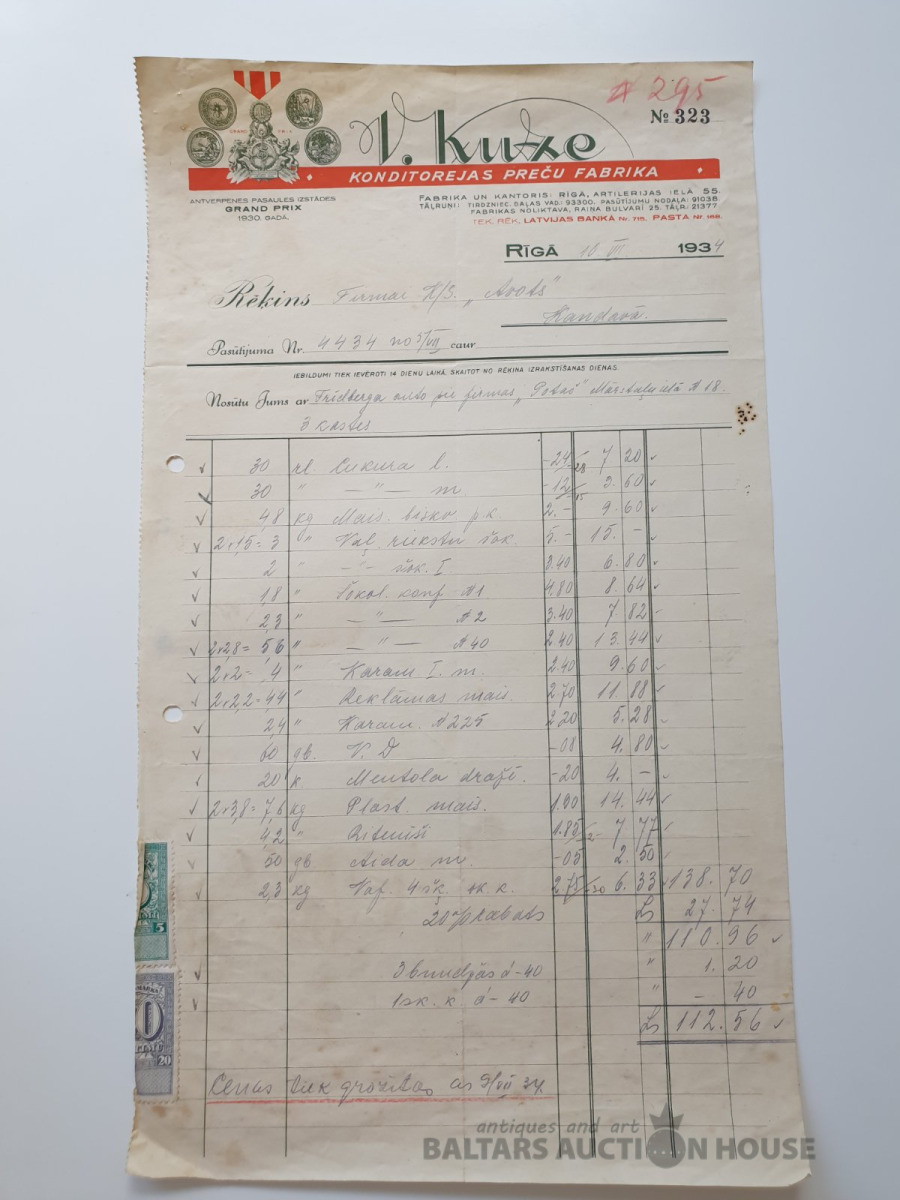 # 295
№ 323
V. Kuze
KONDITOREJAS PREČU FABRIKA
GRAND PRIX
ANTVERPENES PASAULES IZSTĀDES
GRAND PRIX
1930. GADĀ.
FABRIKA UN KANTORIS: RĪGĀ, ARTILERIJAS IELĀ 55.
TĀLRUŅI: TIRDZNIEC. DAĻAS VAD.: 93300. PASŪTĪJUMU NODAĻA: 91038.
FABRIKAS NOLIKTAVA, RAIŅA BULVĀRĪ 25. TĀLR.: 21377
TEK. RĒĶ. LATVIJAS BANKĀ Nr. 715, PASTA Nr. 168.
RĪGĀ 10 VII 1934
Rēķins Firmai K/S. „Avots"
Kandavā.
Pasūtījuma Nr. 4434 no 5/VII caur
IEBILDUMI TIEK IEVĒROTI 14 DIENU LAIKĀ, SKAITOT NO RĒĶINA IZRAKSTĪŠANAS DIENAS.
Nosūtu Jums ar Frīdberga auto pie firmas Mārstaļu ielā # 18.
3 kastes
30 Cukura l. -24 28 7 20
30 " — " — m. -12 15 3. 60
4,8 kg Mais. bisko p.k. 2. - 9. 60
2 x 1,5 = 3 " Vaļ. riekstu šok. 5. - 15. -
2 " - " - šok. I 3.40 6. 80
1,8 " Šokol. konf. #1 4,80 8. 64
2,3 " — " — #2 3.40 7 82
2 x 2,8 = 5,6 " — " — #40 2.40 13. 44
2 x 2 = 4 " Karam I. m. 2.40 9. 60
2 x 2,2 = 4,4 " Reklāmas mais. 2.70 11. 88
2,4 " Karam. #225 2.20 5. 28
60 gb. V. D -08 4. 80
20 k. Mentola dražē. -20 4. -
2 x 3,8 = 7,6 kg Plast. mais. 1.90 14. 44
4,2 " Ritenīši 1.85 2- 7 77
50 gb Aida m. -05 2. 50
2,3 kg Vaf. 4 šķ. 2.75 6. 33 138. 70
20% rabats Ls 27. 74
" 110. 96
3 bundžas á -40 " 1. 20
1 sk. k. á - 40 " - 40
Ls 112. 56
Cenas tiek grozītas ar 9/VII 34.
5
20
antiques and art
BALTARS AUCTION HOUSE